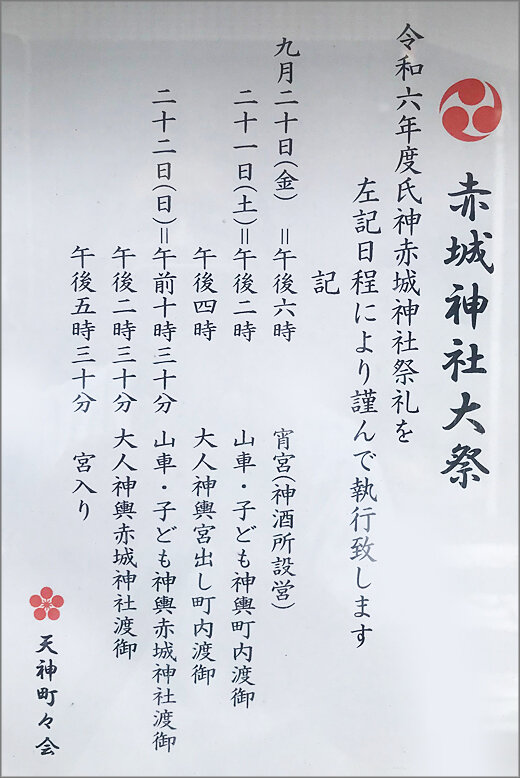 赤城神社大祭
令和六年度氏神赤城神社祭礼を
左記日程により謹んで執行致します
記
九月二十日(金)＝午後六時　宵宮(神酒所設営)
二十一日(土)＝午後二時　山車・子ども神輿町内渡御
午後四時　大人神輿宮出し町内渡御
二十二日(日)＝午前十時三十分　山車・子ども神輿赤城神社渡御
午後二時三十分　大人神輿赤城神社渡御
午後五時三十分　宮入り
天神町々会